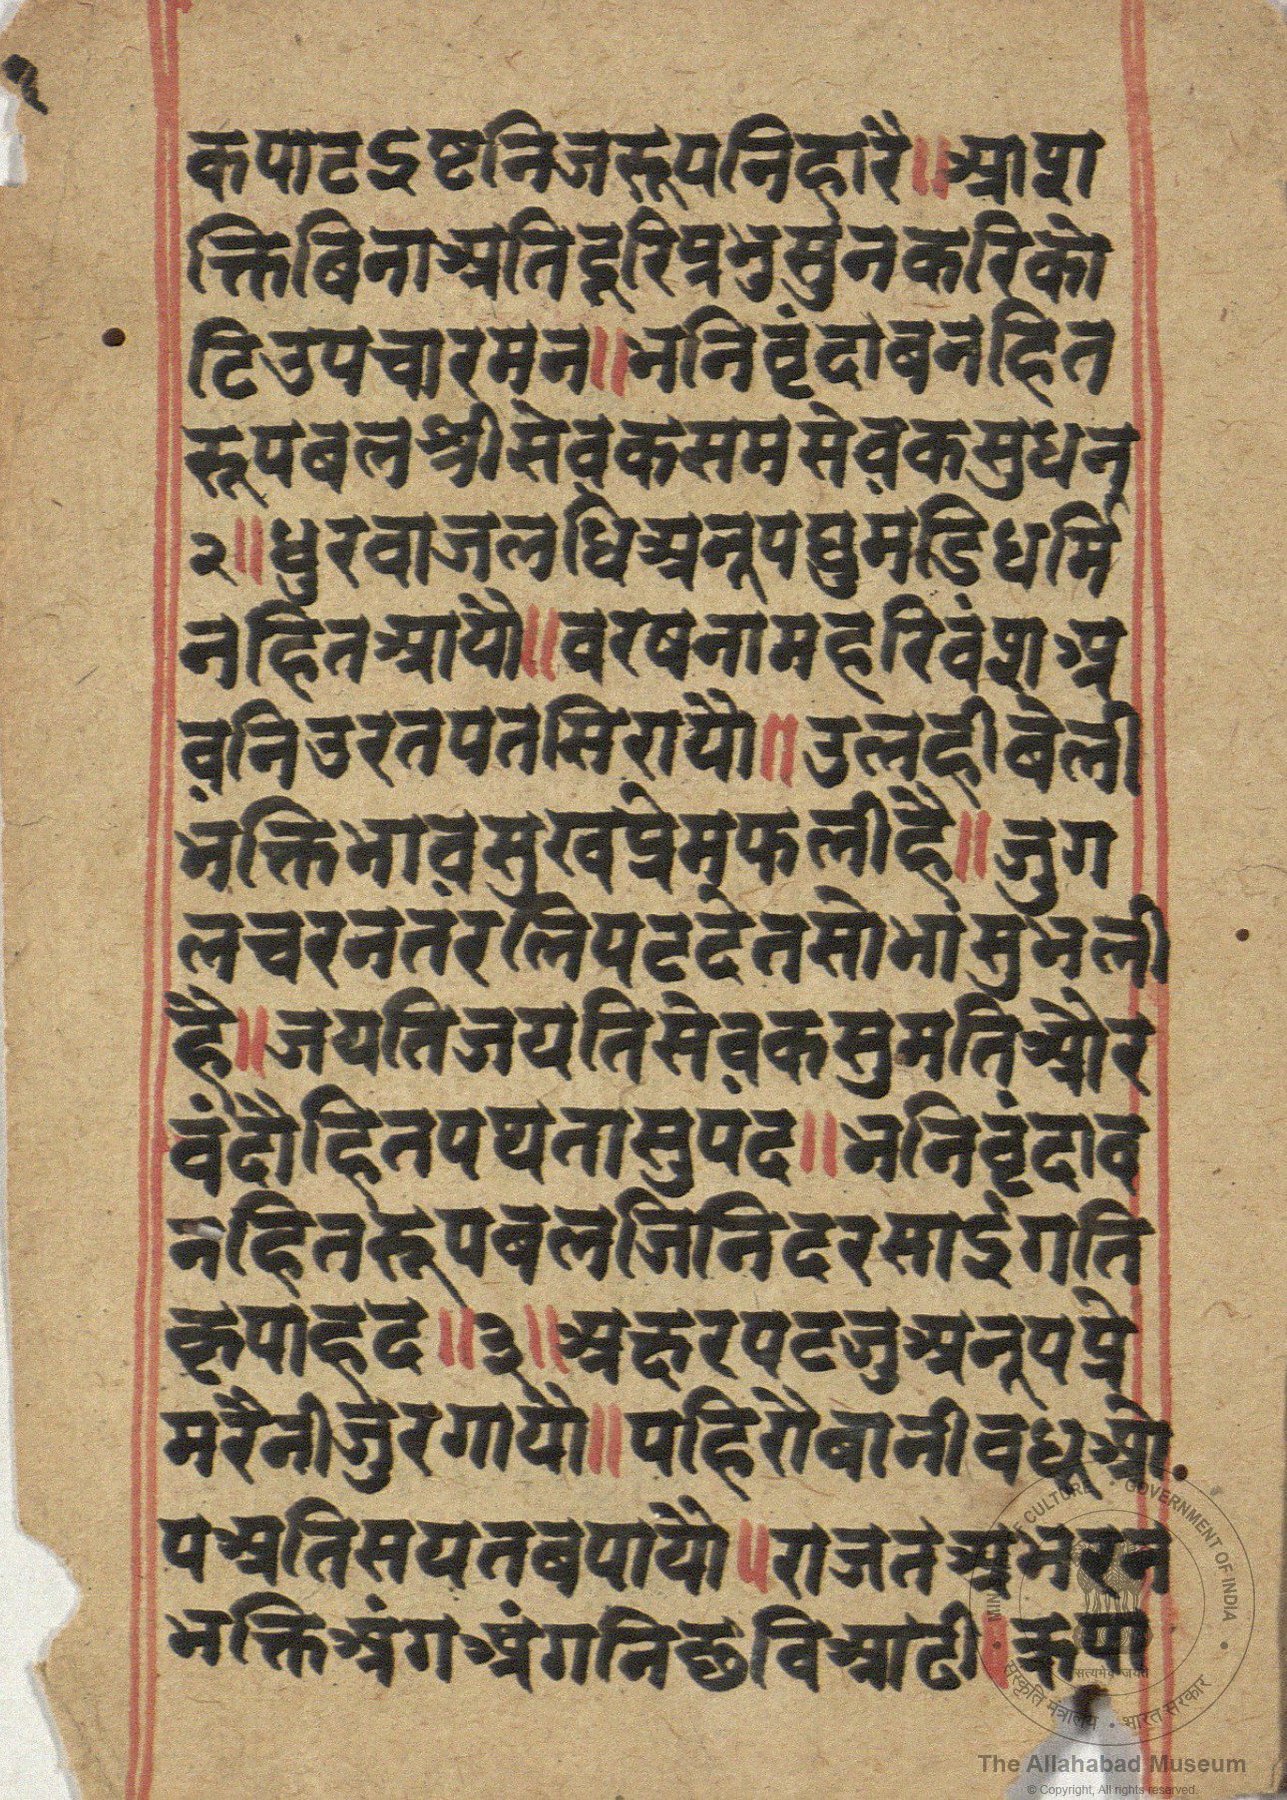 २
कपाटऽष्टनिजरूपनिहारै॥आश
क्तिबिनाअतिदूरिप्रभुसुनकरिको
टिउपचारमन॥भनिवृंदाबनहित
रूपबलश्रीसेव़कसमसेव़कसुधन
२॥धुरवाजलधिअनूपघुमडिधर्मि
नहितआयौ॥वरषनामहरिवंशअ
व़निउरतपतसिरायौ॥उलहीबेली
भक्तिभाव़सुखप्रेमफलीहै॥जुग
लचरनतरलिपटदेतसोभासुभली
है॥जयतिजयतिसेव़कसुमतिऔर
वंदौहितपथतासुपद॥भनिवृंदाव
नहितरूपबलजिनिदरसाईगति
कृपाहद॥३॥अरुरपटजुअनूपप्रे
मरैनीजुरगायौ॥पहिरौबानीवधूओ
पअतिसयतबपायौ॥राजतअभरन
भक्तिअंगअंगनिछविआटी॥कृपा
MINISTRY OF CULTURE · GOVERNMENT OF INDIA
सत्यमेव जयते
संस्कृति मंत्रालय · भारत सरकार
The Allahabad Museum
© Copyright, All rights reserved.